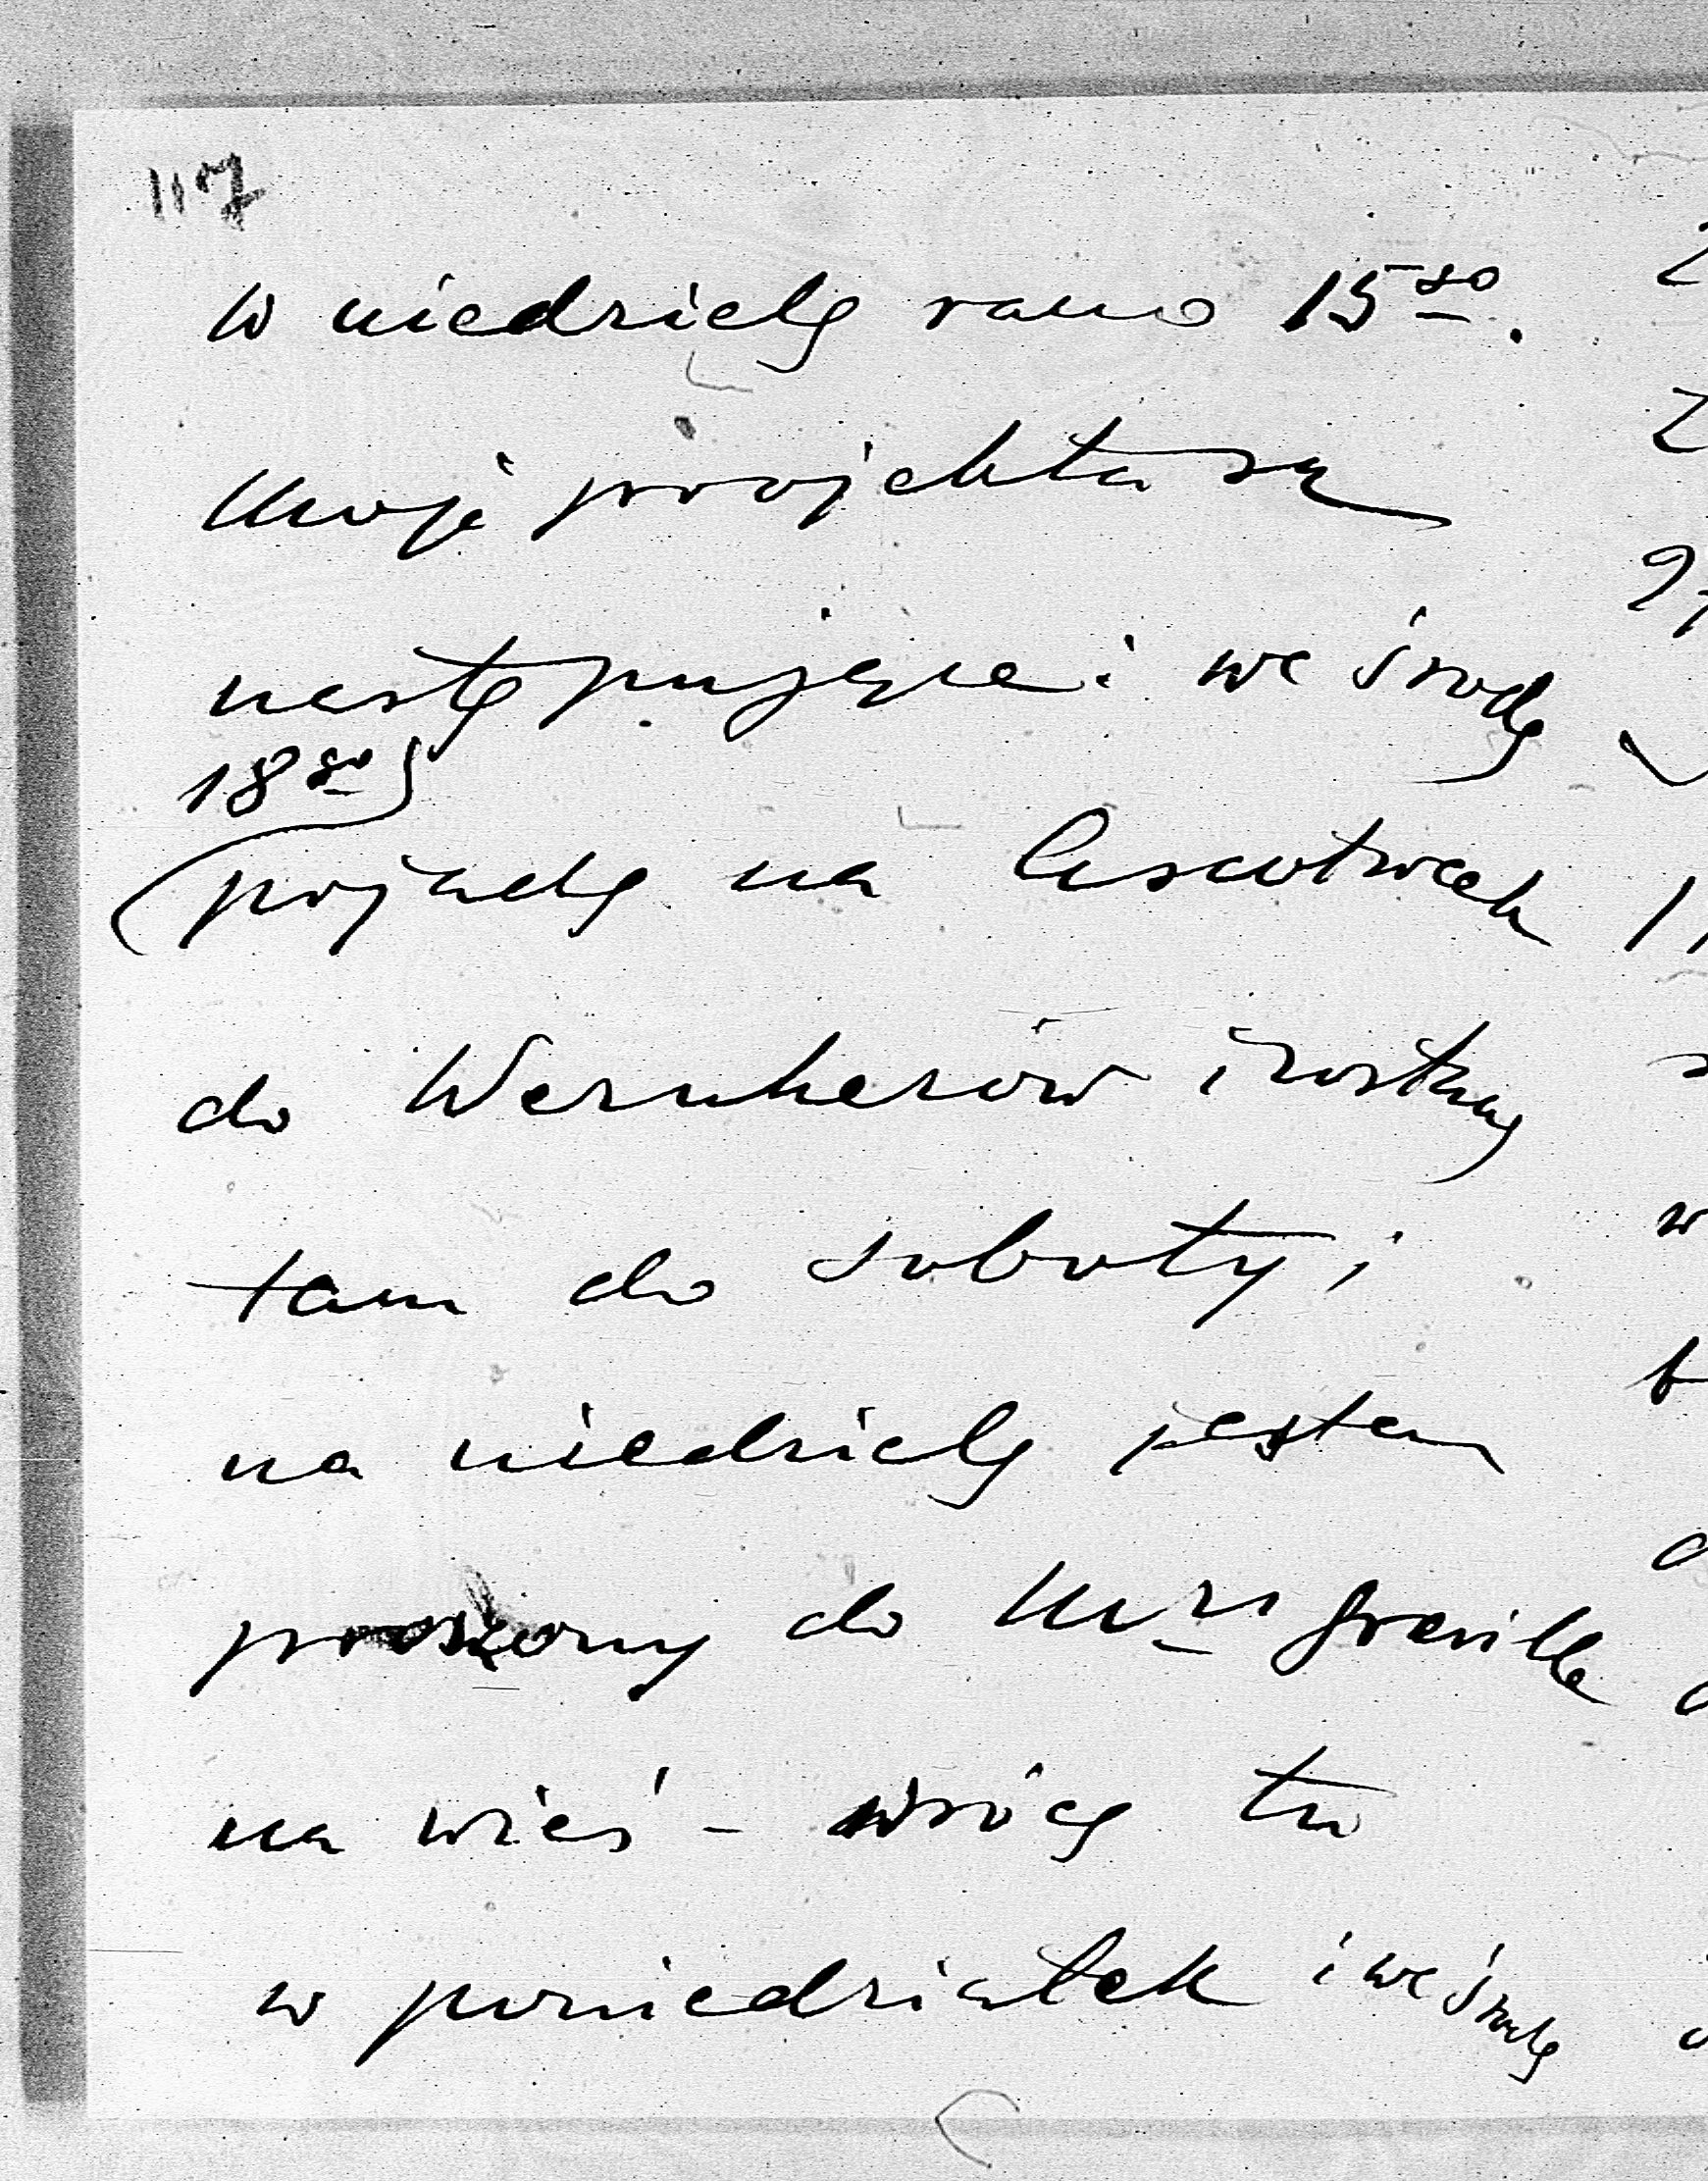 117
W niedzielę rano 15go.
Moje projekta są
następujące: we środę
18go)
(pojadę na Ascotweek
do Wernherów i zostanę
tam do soboty;
na niedzielę jestem
proszony do Mrs Greville
na wieś – wrócę tu
w poniedziałek i we środę